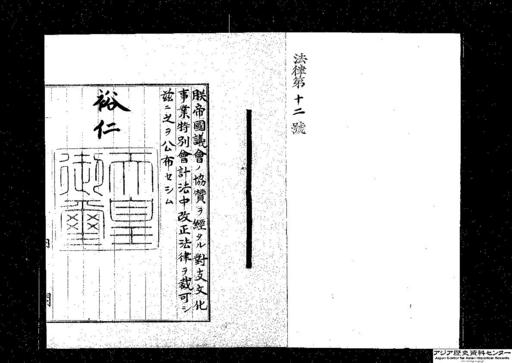 法律第十二號
朕帝國議會ノ協贊ヲ經タル對支文化
事業特別會計法中改正法律ヲ裁可シ
玆ニ之ヲ公布セシム
裕仁
天皇
御璽
アジア歴史資料センター
Japan Center for Asian Historical Records